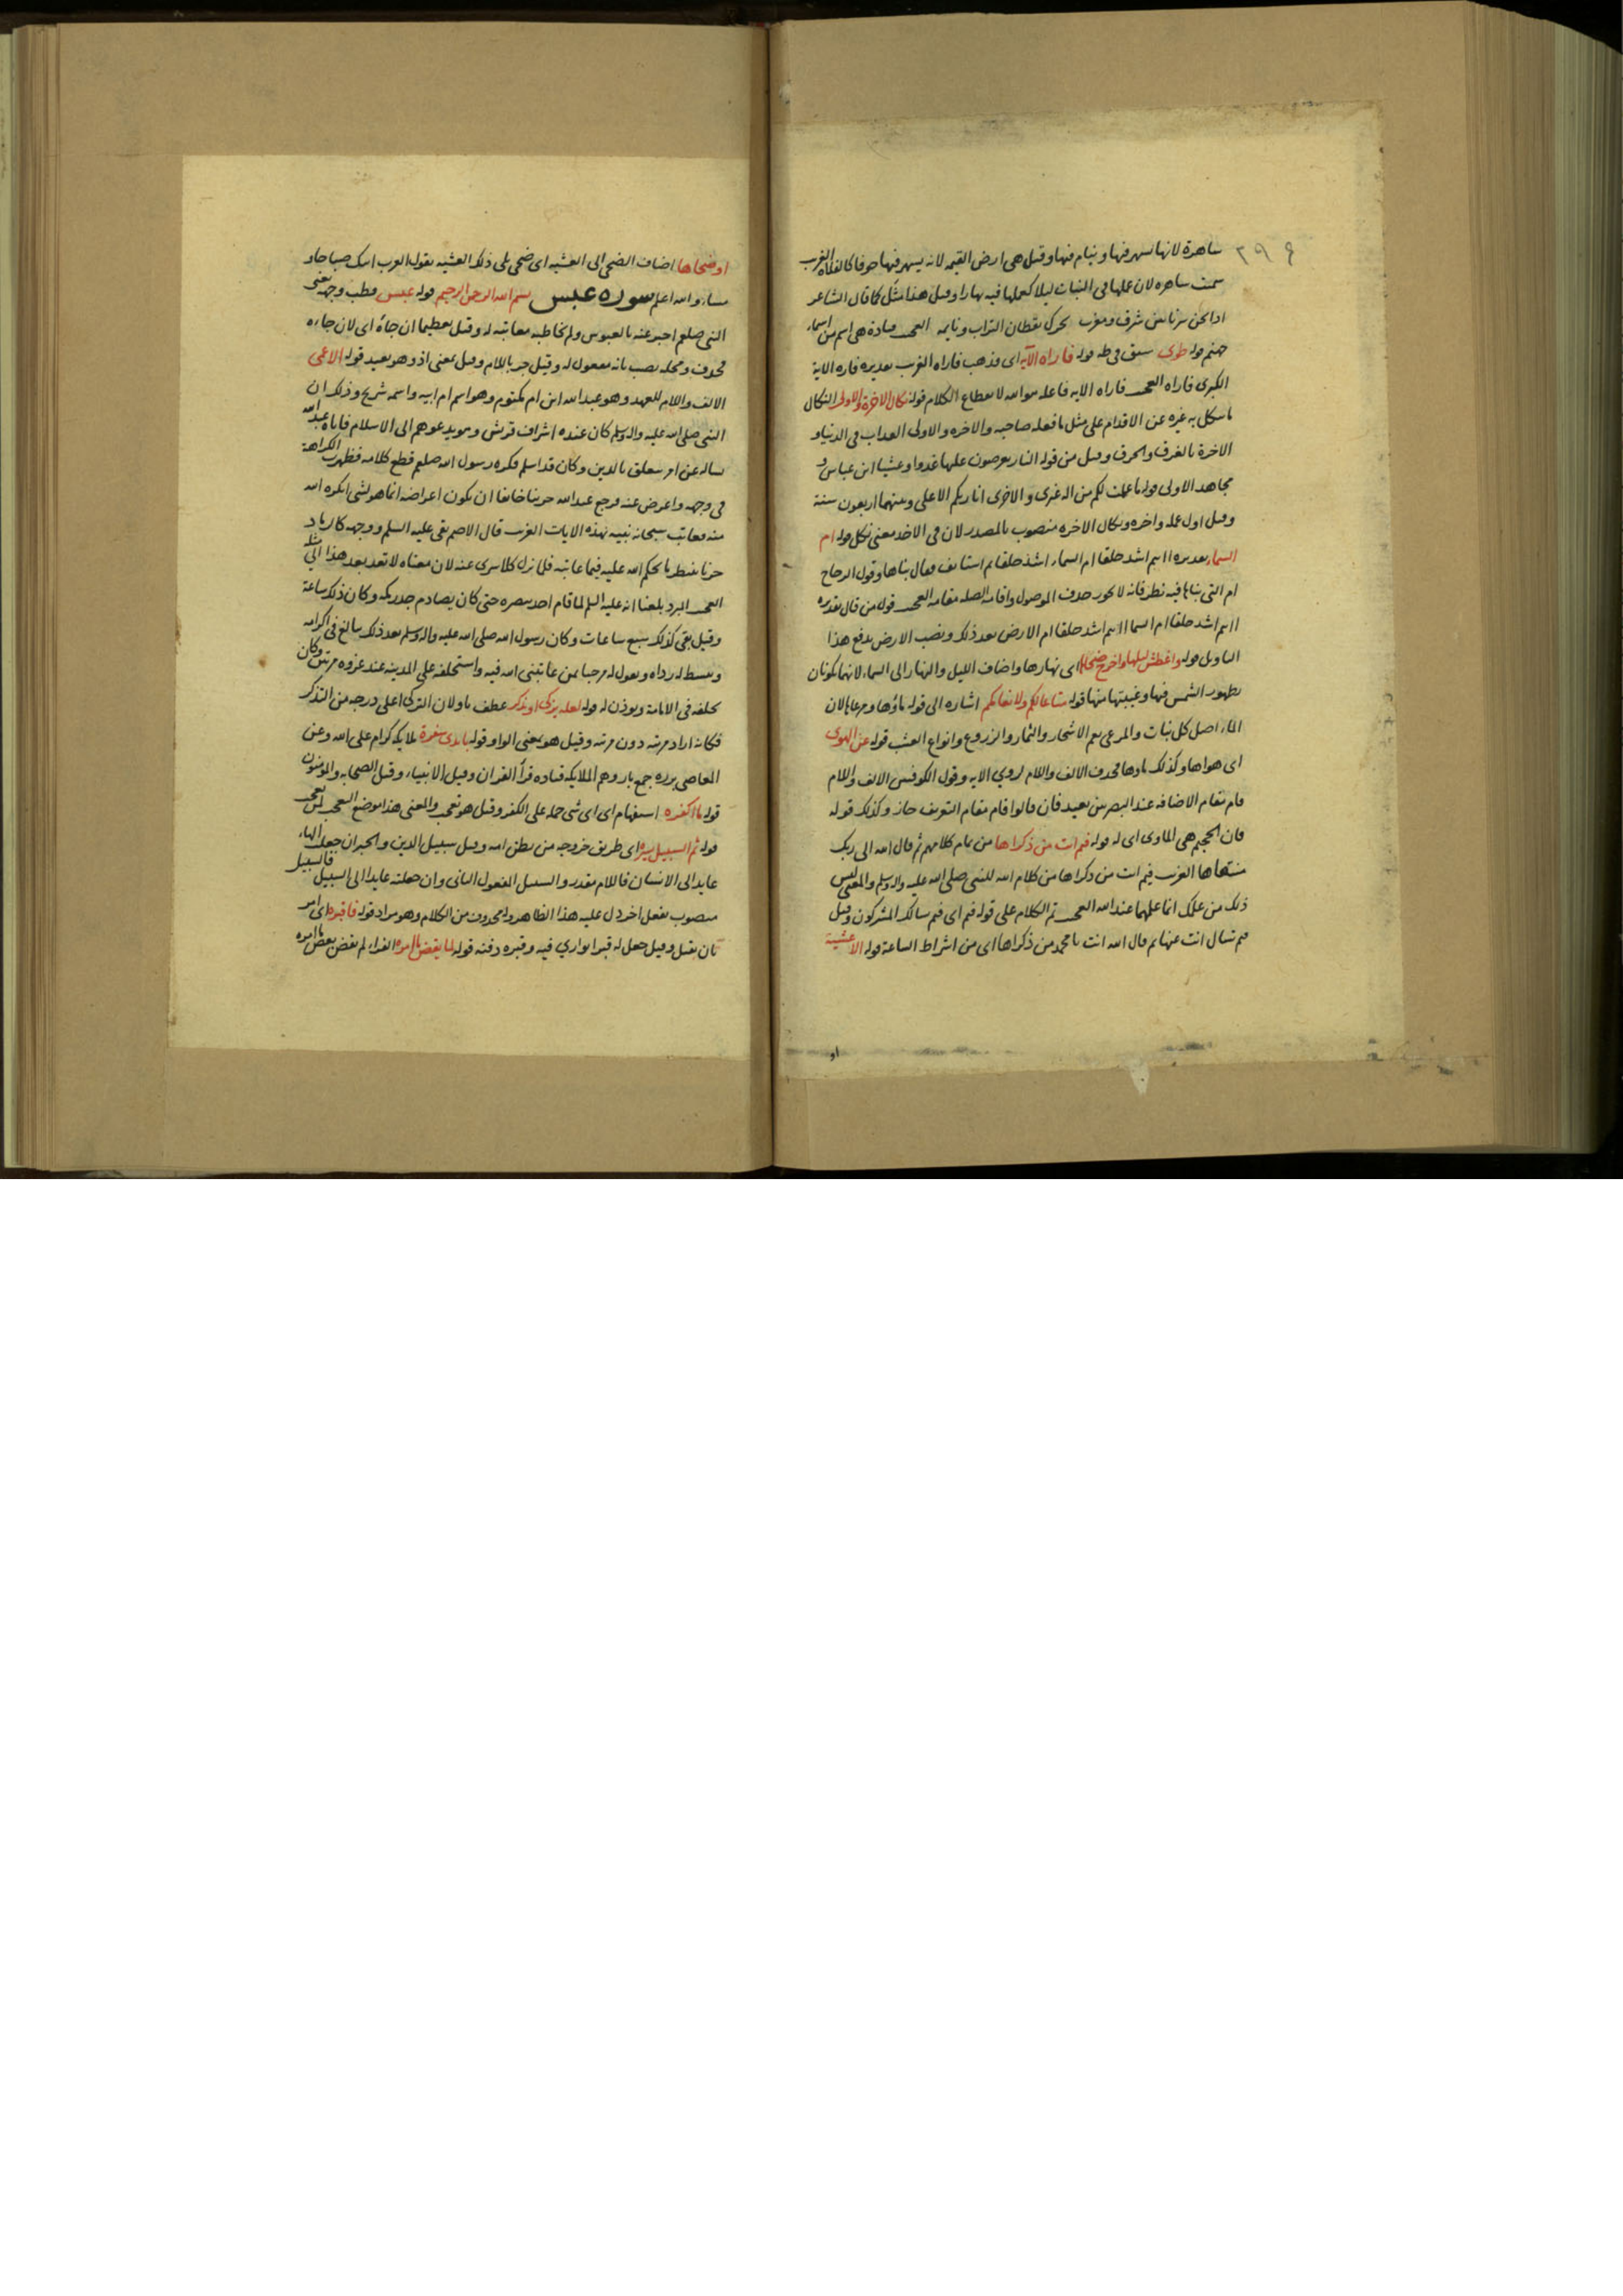 ساهرة لانها يسهر فيها وينام فيها وقيل هى ارض القيمه لانه يسهر فيها خوفا كالفلاه الغرب
سمت ساهره لان عملها فى النبات ليلا كعملها فيه نهارا وقيل هذا مثل كما قال الشاعر
اذا نحن سرنا بين شرق ومغرب تحرك يقطان التراب ونايمه العجب قتادة هى اسم من اسماء
جهنم قوله طوى سبق فى طه قوله فاراه الآية اى فذهب فاراه الغرب تقديره فاره الاية
الكبرى فاراه العجب فاراه الايه فاعله هو الله لانقطاع الكلام قوله نكال الاخرة والاولى النكال
ما ينكل به غيره عن الاقدام على مثل ما فعله صاحبه والاخره والاولى العذاب فى الدنيا و
الاخرة بالغرق والحرق وقيل من قوله النار يعرضون عليها غدوا وعشيا ابن عباس و
مجاهد الاولى قوله ما علمت لكم من اله غيرى والاخرى انا ربكم الاعلى وبينهما اربعون سنة
وقيل اول عمله واخره ونكال الاخره منصوب بالمصدر لان فى الاخذ معنى نكل قوله ام
السماء تقديره اانتم اشد خلقا ام السماء اشد خلقا ثم استانف فقال بناها وقول الزجاج
ام التى بناها فيه نظر فانه لا يجوز حذف الموصول واقامه الصله مقامه العجب قول من قال تقديره
اانتم اشد خلقا ام السما اانتم اشد خلقا ام الارض بعد ذلك ونصب الارض يدفع هذا
التاويل قوله واغطش ليلها واخرج ضحاها اى نهارها واضاف الليل والنهار الى السماء لانهما يكونان
بظهور الشمس فيها وغيبتها منها قوله متاعا لكم ولانعامكم اشاره الى قوله ماؤها ومرعاها لان
الماء اصل كل نبات والمرعى يعم الاشجار والثمار والزروع وانواع العشب قوله عن الهوى
اى هواها وكذلك ماوها فحذف الالف واللام لروي الايه وقول الكوفيين الالف واللام
قام مقام الاضافه عند البصريين بعيد فان قالوا قام مقام التعريف جاز وكذلك قوله
فان الجحيم هى الماوى اى له قوله فيم انت من ذكراها من تمام كلامهم ثم قال الله الى ربك
منتهاها الغرب فيم انت من ذكراها من كلام الله للنبى صلى الله عليه واله وسلم والمعنى ليس
ذلك من علمك انما علمها عند الله العجب تم الكلام على قوله فيم اى فيم سالك المشركون وقيل
فيم تسال انت عنها ثم قال الله انت يا محمد من ذكراها اى من اشراط الساعة قوله الا عشية
او
او ضحاها اضاف الضحى الى العشيه اى ضحى يلى ذلك العشيه يقول العرب اتيتك صباحا و
مساء والله اعلم سوره عبس بسم الله الرحمن الرحيم قوله عبس قطب وجهه يعنى
النبى صلعم اخبر عنه بالعبوس ولم يخاطبه معاتبه له وقيل تعظيما ان جاءه اى لان جاءه
فحذف ومحله نصب بانه مفعول له وقيل جر باللام وقيل بمعنى اذ وهو بعيد قوله الاعمى
الالف واللام للعهد وهو عبد الله ابن ام مكتوم وهو اسم ام ابيه واسمه شريح وذلك ان
النبى صلى الله عليه واله وسلم كان عنده اشراف قريش وهو يدعوهم الى الاسلام فاتاه عبد الله
يساله عن امر يتعلق بالدين وكان قد اسلم فكره رسول الله صلعم قطع كلامه فظهرت الكراهة
فى وجهه واعرض عنه فرجع عبد الله حزينا خايفا ان يكون اعراضه انما هو لشى انكره الله
منه فعاتب سبحانه نبيه بهذه الايات الغرب قال الاصم بقى عليه السلم ووجهه كالرماد
حزنا ينتظر ما يحكم الله عليه فيما عاتبه فلما نزل كلا سرى عنه لان معناه لا تعد بعد هذا الى مثله
العجب المبرد بلغنا انه عليه السلم لما قام اخذ بصره حتى كان يصادم جدر مكه وكان ذلك ساعة
وقيل بقى كذلك سبع ساعات وكان رسول الله صلى الله عليه واله وسلم بعد ذلك يبالغ فى اكرامه
ويبسط له رداه ويقول له مرحبا بمن عاتبنى الله فيه واستخلفه على المدينه عند غزوه مرتين وكان
يخلفه فى الامامة ويوذن له قوله لعله يزكى او يذكر عطف باو لان التزكى اعلى درجه من التذكر
فكانه اراد مرتبه دون مرتبه وقيل هو بمعنى الواو قوله بايدى سفرة ملايكه كرام على الله وعن
المعاصى برره جمع بار وهم الملايكه قتاده قرأ القران وقيل الانبياء وقيل الصحابه والمومنون
قوله ما اكفره استفهام اى اى شى حمله على الكفر وقيل هو تعجب والمعنى هذا موضع التعجب لمن تعجب
قوله ثم السبيل يسره اى طريق خروجه من بطن امه وقيل سبيل الدين والخير ان جعلت الهاء
عايدا الى الانسان فاللام مقدر والسبيل المفعول الثانى وان جعلته عايدا الى السبيل فالسبيل
منصوب بفعل اخر دل عليه هذا الظاهر و محذوف من الكلام وهو مراد قوله فاقبره اى امر
بان يقبل وقيل جعل له قبرا يوارى فيه وقبره دفنه قوله لما يقض ما امره الفراء لم يقض بعض ما امره